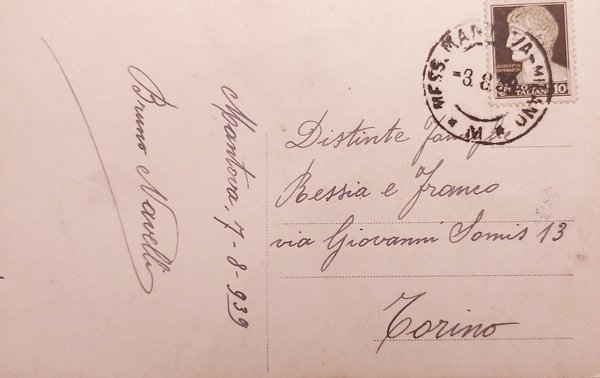 Bruno Navelli
Mantova, 7-8-939
MESS. MANTOVA-MILANO
-3.8
10
ITALIANE
Distinte Famiglie
Ressia e Franco
via Giovanni Somis 13
Torino